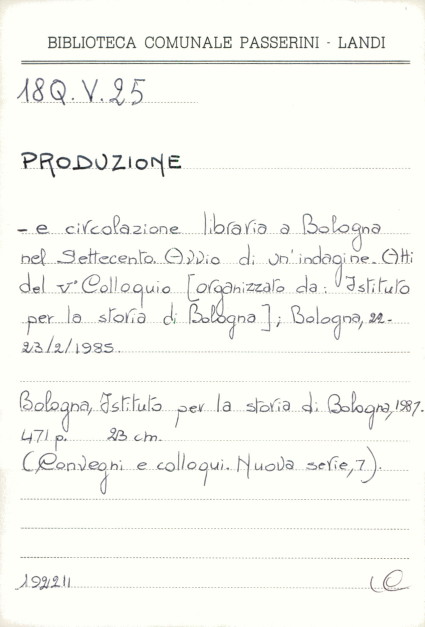 BIBLIOTECA COMUNALE PASSERINI - LANDI
18Q.V.25
PRODUZIONE
- e circolazione libraria a Bologna
nel Settecento. Avvio di un'indagine. Atti
del V° Colloquio [organizzato da: Istituto
per la storia di Bologna]; Bologna, 22-
23/2/1985.
Bologna, Istituto per la storia di Bologna, 1987.
471 p. 23 cm.
(Convegni e colloqui. Nuova serie, 7).
192211